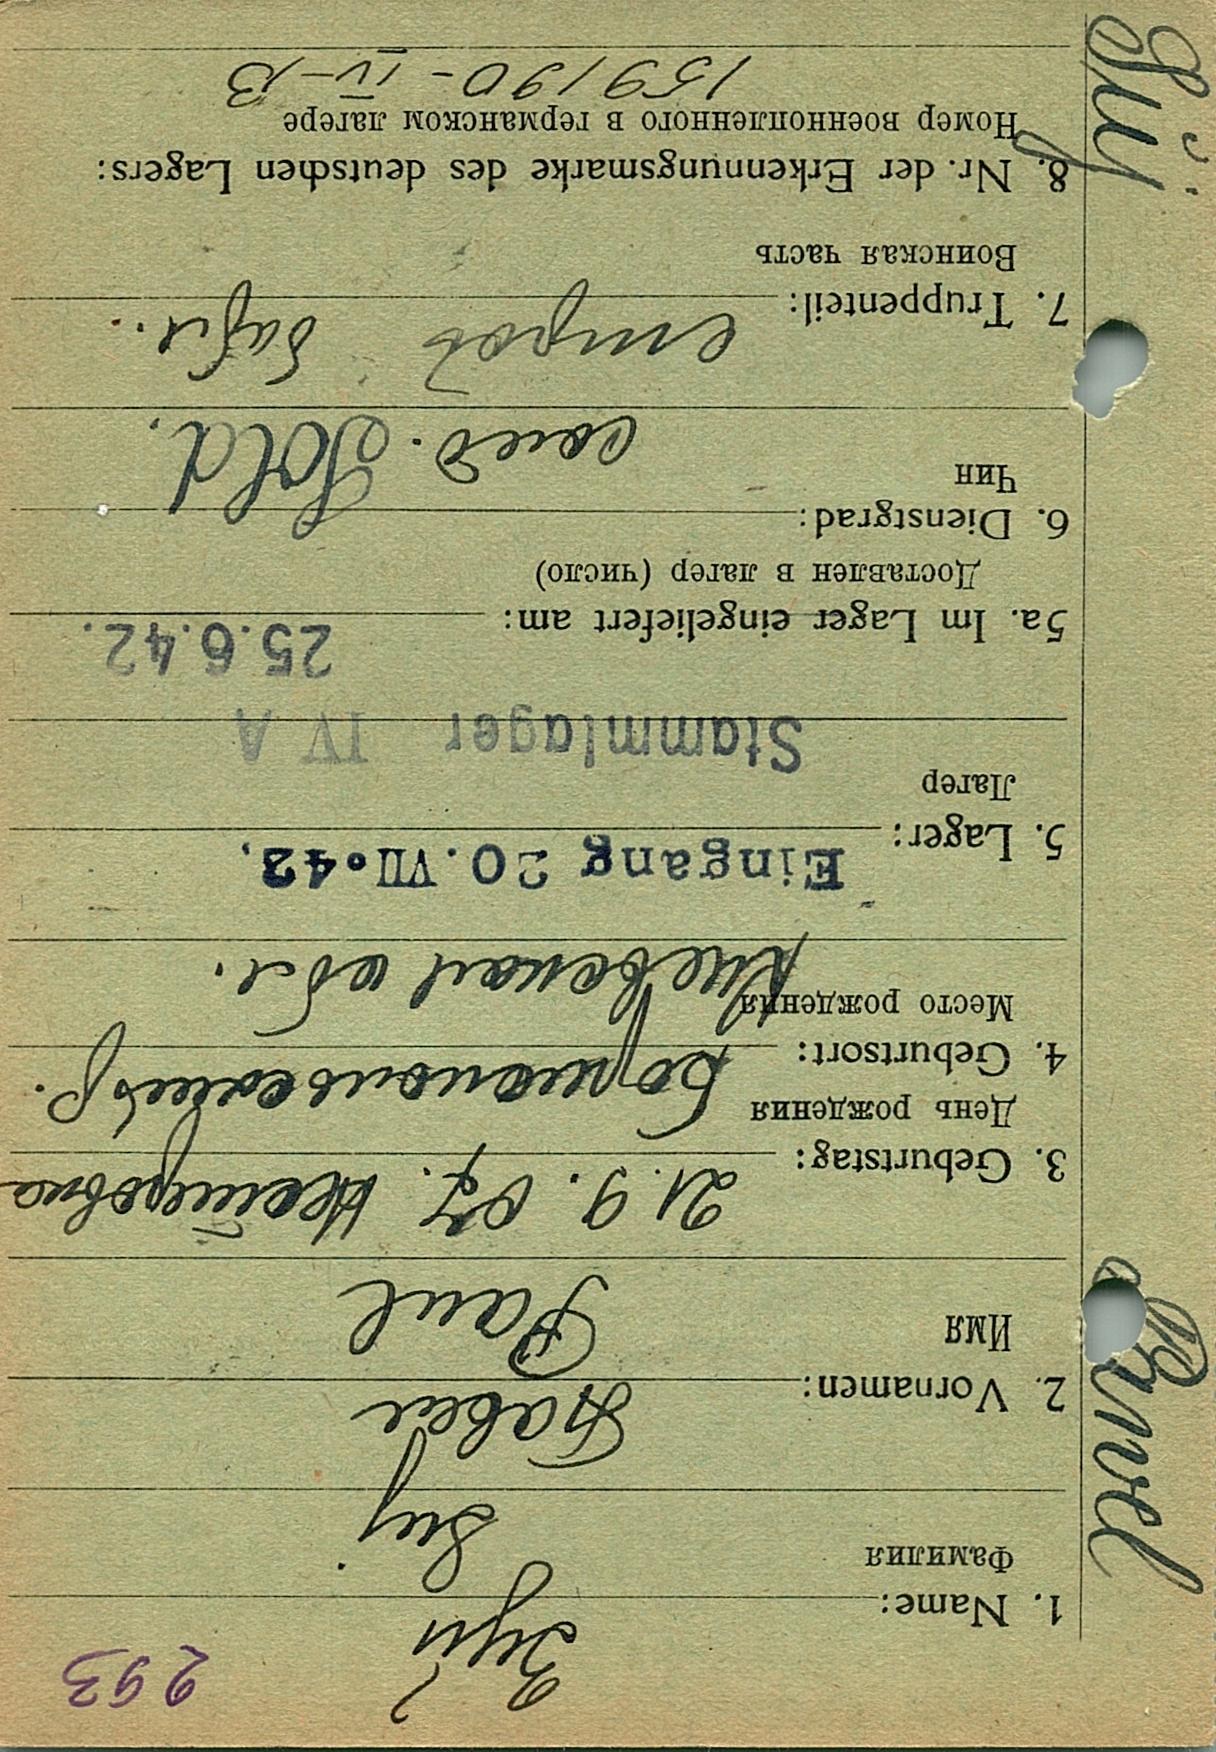 293
1. Name: Зуй
Фамилия
Suj
2. Vornamen: Павел
Имя
Paul
3. Geburtstag: 21. 9. 07.
День рождения
4. Geburtsort: Бориспольский р.
Место рождения
Киевской обл.
5. Lager: Eingang 20. VII. 42.
Лагер
Stammlager IV A
5a. Im Lager eingeliefert am: 25. 6. 42.
Доставлен в лагер (число)
6. Dienstgrad:
Чин
Sold.
7. Truppenteil: строб
Воинская часть
8. Nr. der Erkennungsmarke des deutschen Lagers:
Номер военнопленного в германском лагере
159190 - IV - B
Suj
Pawel